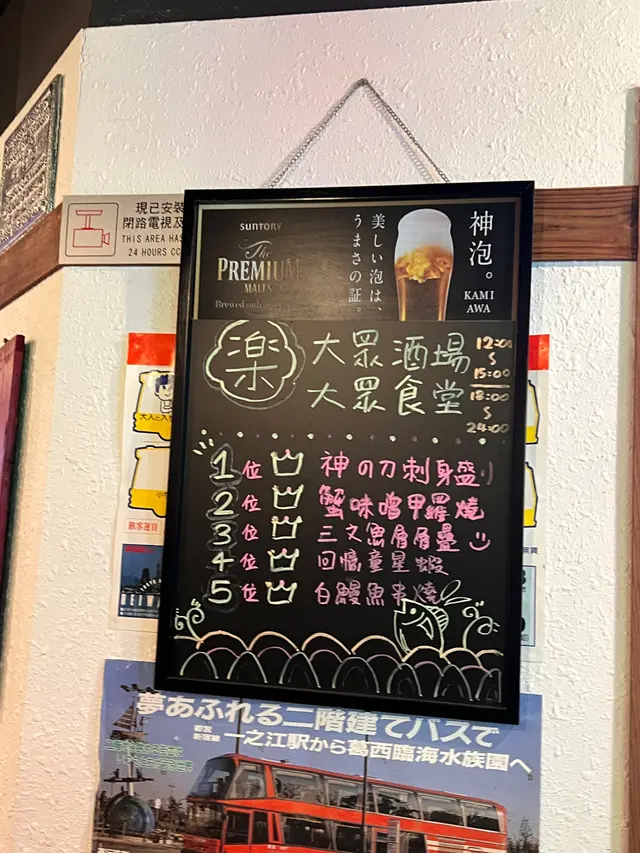 現已安裝
閉路電視及
THIS AREA HAS
24 HOURS CC
SUNTORY
The
PREMIUM
MALT'S
美しい泡は、
うまさの証。
神泡。
KAMI
AWA
楽
大眾酒場
大眾食堂
12:00
15:00
18:00
24:00
1位 神の刀刺身盛り
2位 蟹味噌甲羅燒
3位 三文魚層層疊
4位 回憶童星蝦
5位 白鰻魚串燒
大人と
旅客運賃
夢あふれる二階建てバスで
都営新宿線 一之江駅から葛西臨海水族園へ